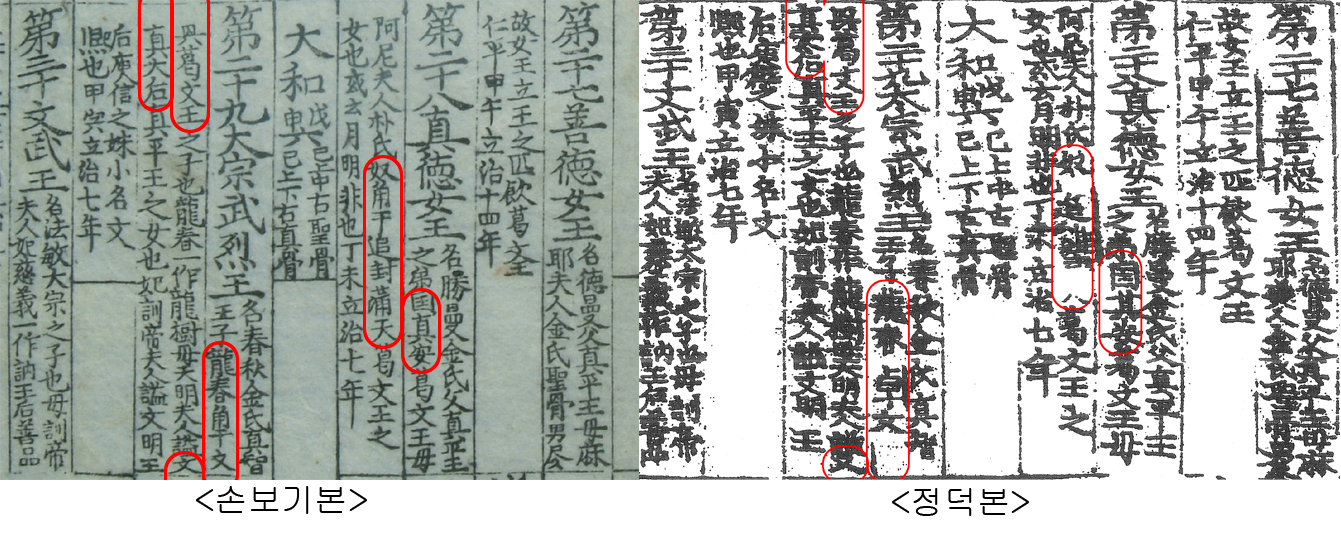 第二十七善徳女王
名德曼父真平王母麻
耶夫人金氏聖骨男尽
故女王立王之匹飲葛文王
仁平甲午立治十四年
第二十八真徳女王
名勝曼金氏父真平王
之弟国真安葛文王母
阿尼夫人朴氏奴角干追封滿天葛文王之
女也或云月明非也丁未立治七年
大和戊申
已上中古聖骨
已下下古真骨
第二十九大宗武烈王
名春秋金氏真智
王子龍春角干文
興葛文王之子也龍春一作龍樹母天明夫人諡文
真大后真平王之女也妃訓帝夫人諡文明王
后庾信之妹小名文
熙也甲寅立治七年
第三十文武王
名法敏大宗之子也母訓帝
夫人妃慈義一作訥王后善品
<손보기본>
第二十七善徳女王
名德曼父真平王母麻
耶夫人金氏聖骨男
故女王立王之匹飲葛文王
仁平甲午立治十四年
第二十八真徳女王
名勝曼金氏父真平王
之弟国其安葛文王母
阿尼夫人朴氏奴追 葛文王之
女也或云月明非也丁未立治七年
大和戊申
已上中古聖骨
已下下古真骨
第二十九太宗武烈王
名春秋金氏真智
王子龍春卓文
興葛文王之子也龍春一作龍樹母天明夫人諡文
真太后真平王之女也妃訓帝夫人諡文明王
后庾信之妹小名文
熙也甲寅立治七年
第三十文武王
名法敏太宗之子也母訓帝
夫人妃慈義一作訥王后善品
<정덕본>